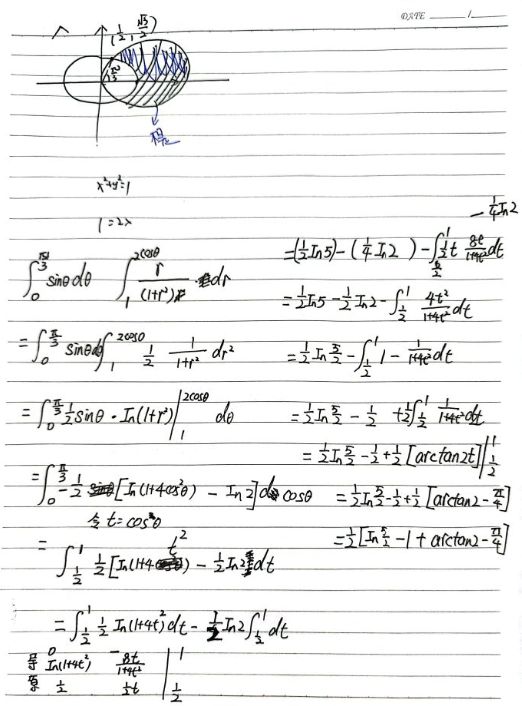 DATE
(1/2, √3/2)
π/3
x²+y²=1
1=2x
∫₀^(π/3) sinθdθ ∫₁^(2cosθ) r/(1+r²) dr
=∫₀^(π/3) sinθdθ ∫₁^(2cosθ) 1/2 1/(1+r²) dr²
=∫₀^(π/3) 1/2 sinθ · In(1+r²)|₁^(2cosθ) dθ
=∫₀^(π/3) -1/2 [In(1+4cos²θ) - In2] d cosθ
令 t=cosθ
= ∫_(1/2)^1 1/2 [In(1+4t²) - 1/2 In2 dt
=∫_(1/2)^1 1/2 In(1+4t²)dt - 1/2 In2 ∫_(1/2)^1 dt
导 In(1+4t²) 8t/(1+4t²) | 1
原 1/2 1/2t | 1/2
- 1/4 In2
=(1/2 In5) - (1/4 In2) - ∫_(1/2)^1 1/2 t 8t/(1+4t²) dt
=1/2 In5 - 1/2 In2 - ∫_(1/2)^1 4t²/(1+4t²) dt
=1/2 In 5/2 - ∫_(1/2)^1 1 - 1/(1+4t²) dt
=1/2 In 5/2 - 1/2 + 1/2 ∫_(1/2)^1 1/(1+4t²) d2t
=1/2 In 5/2 - 1/2 + 1/2 [arctan2t]|_(1/2)^1
=1/2 In 5/2 - 1/2 + 1/2 [arctan2 - π/4]
=1/2 [In 5/2 - 1 + arctan2 - π/4]